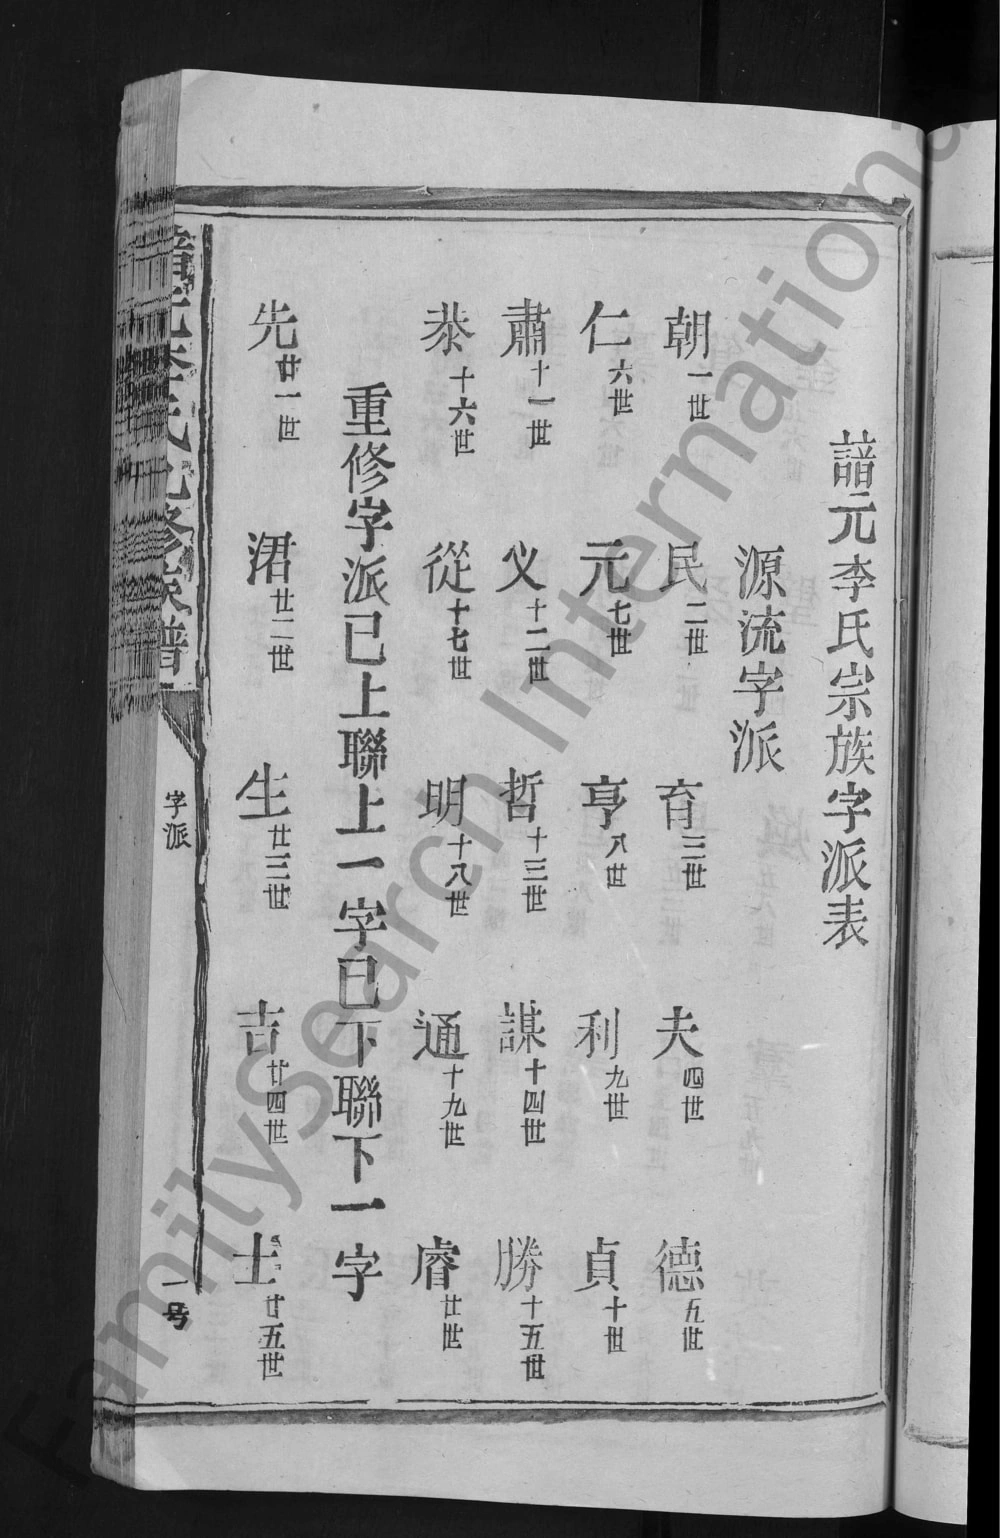 諳元李氏宗族字派表
源流字派
朝一世 民二世 育三世 夫四世 德五世
仁六世 元七世 亨八世 利九世 貞十世
肅十一世 义十二世 哲十三世 謀十四世 勝十五世
恭十六世 從十七世 明十八世 通十九世 睿廿世
重修字派已上聯上一字已下聯下一字
先廿一世 涒廿二世 生廿三世 吉廿四世 士廿五世
字派
一号
FamilySearch International